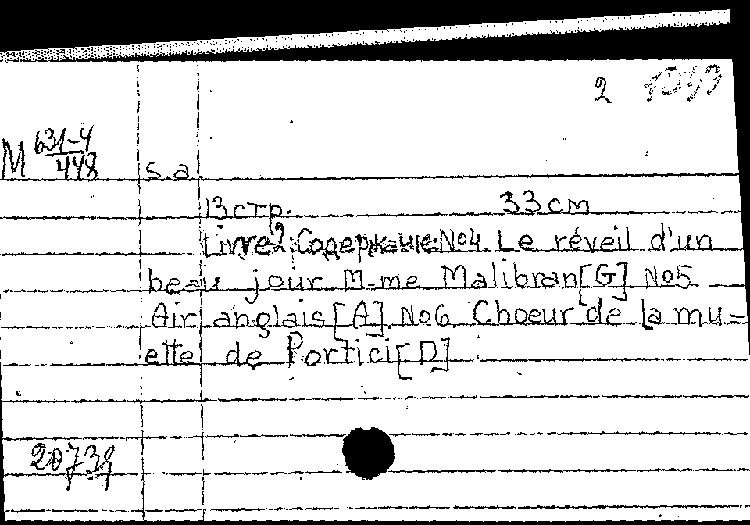 2
M 631-4
448
s.a.
13 стр. 33 см
Livre 2: Содержание: №4. Le réveil d'un
beau jour M-me Malibran [G] №5
Air anglais [A] №6 Choeur de la mu=
ette de Portici [D]
20739